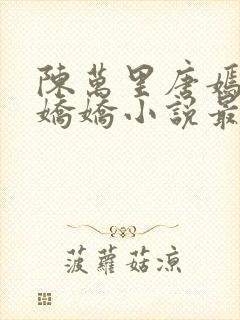 陳萬里唐嫣
嬌嬌小說最
菠蘿菇涼